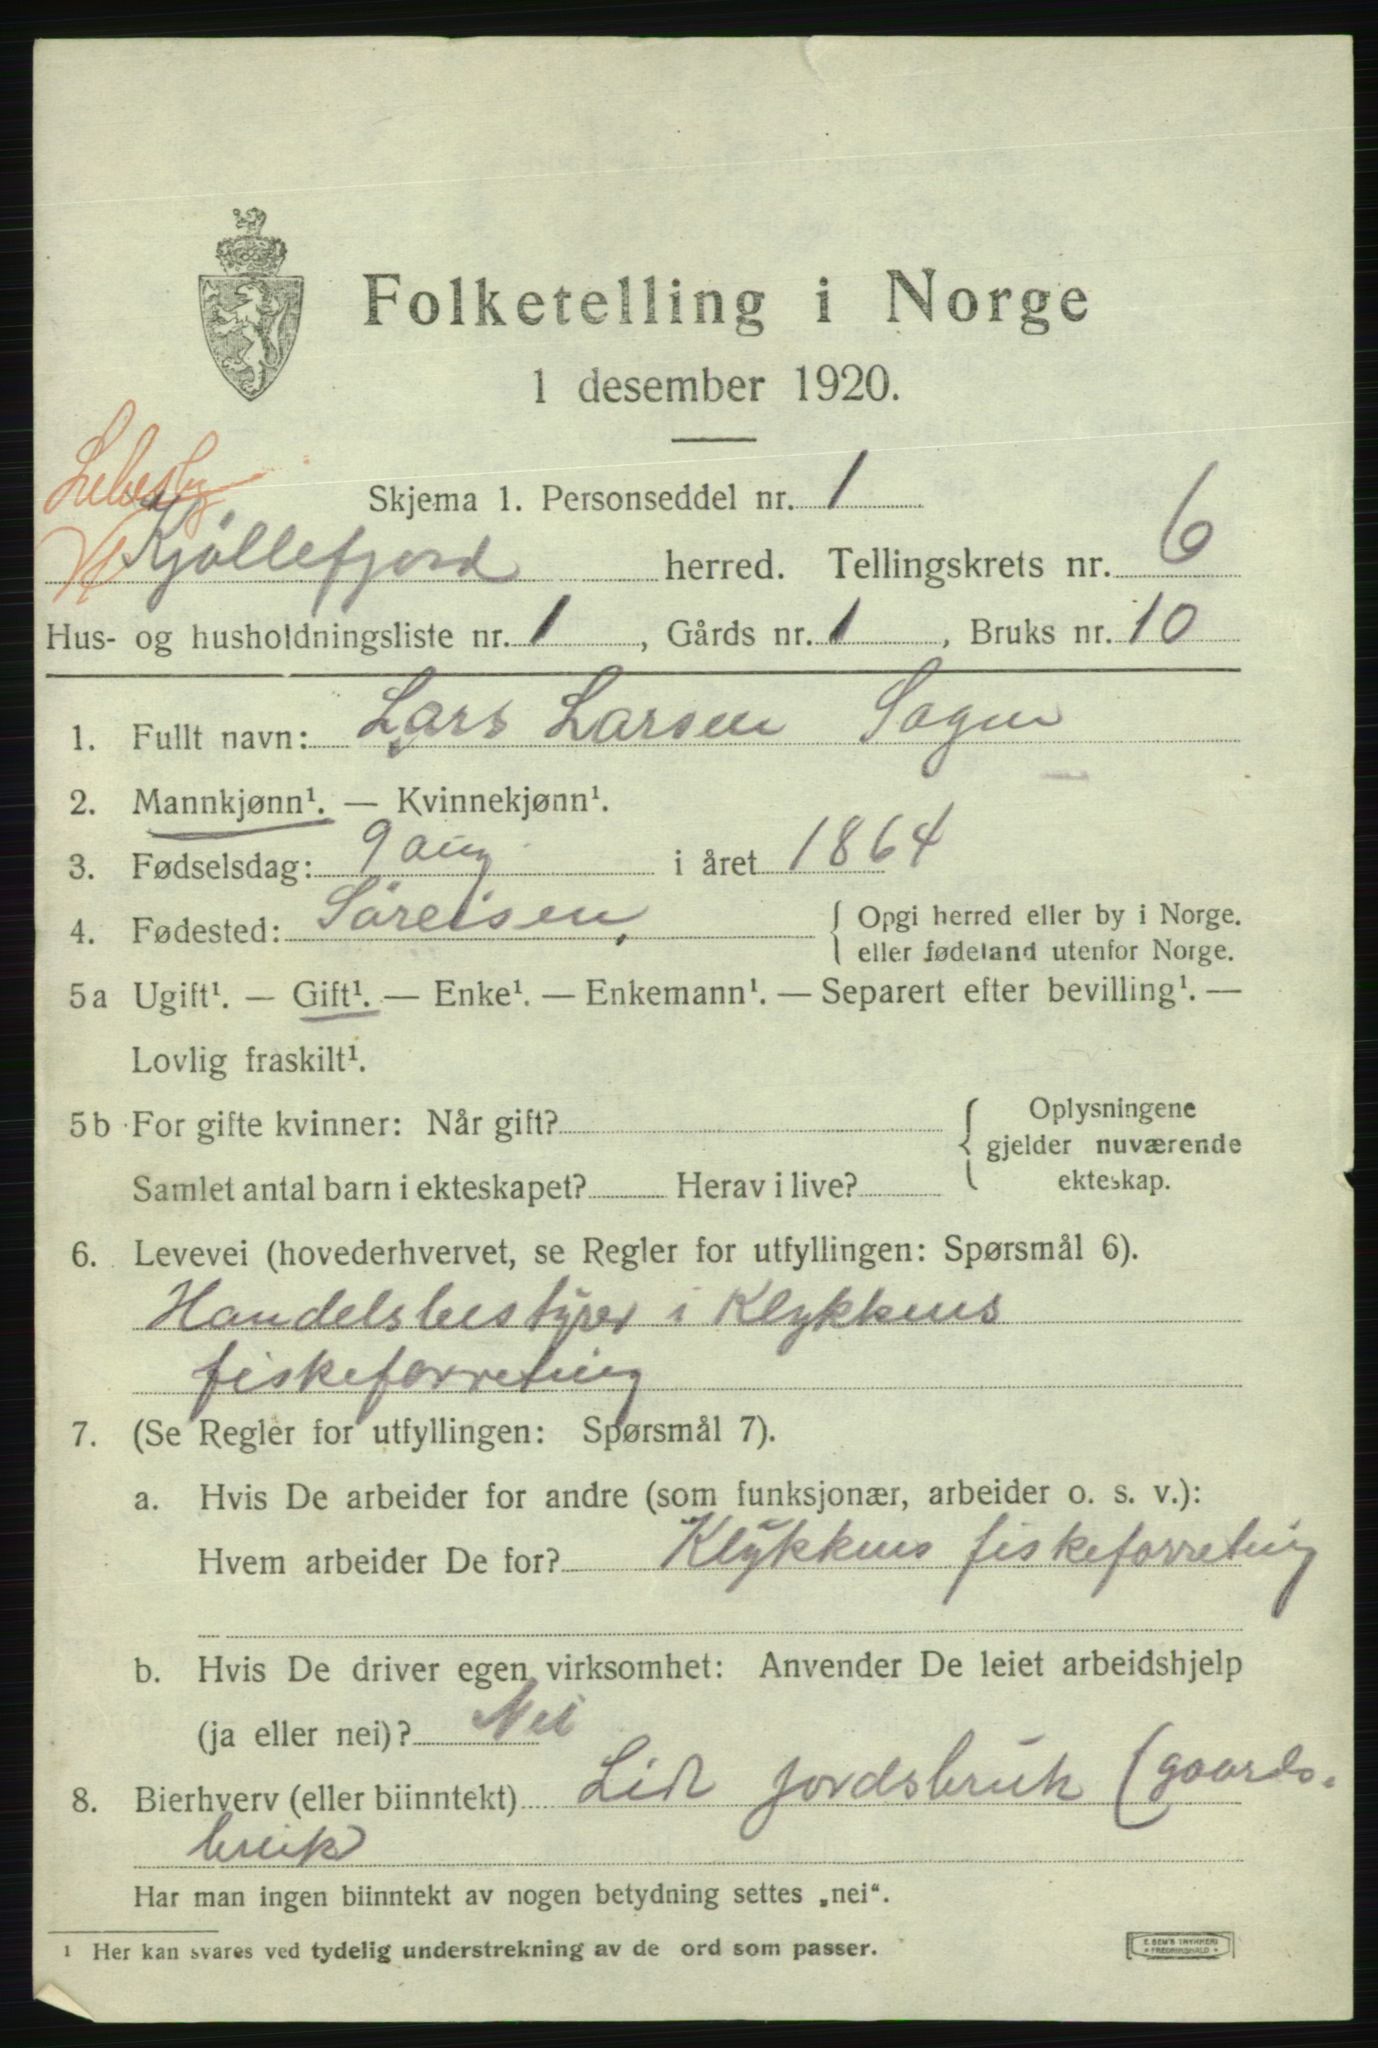 Folketelling i Norge
1 desember 1920.
Lebesby
Skjema 1. Personseddel nr. 1
Kjøllefjord herred. Tellingskrets nr. 6
Hus- og husholdningsliste nr. 1, Gårds nr. 1, Bruks nr. 10
1. Fullt navn: Lars Larsen Sagen
2. Mannkjønn¹. — Kvinnekjønn¹.
3. Fødselsdag: 9 aug i året 1864
4. Fødested: Søreisen, { Opgi herred eller by i Norge.
eller fødeland utenfor Norge.
5a Ugift¹. — Gift¹. — Enke¹. — Enkemann¹. — Separert efter bevilling¹. —
Lovlig fraskilt¹.
5b For gifte kvinner: Når gift? { Oplysningene
gjelder nuværende
Samlet antal barn i ekteskapet? Herav i live? ekteskap.
6. Levevei (hovederhvervet, se Regler for utfyllingen: Spørsmål 6).
Handelsbestyrer i Klykkens
fiskeforretning
7. (Se Regler for utfyllingen: Spørsmål 7).
a. Hvis De arbeider for andre (som funksjonær, arbeider o. s. v.):
Hvem arbeider De for? Klykkens fiskeforretning
b. Hvis De driver egen virksomhet: Anvender De leiet arbeidshjelp
(ja eller nei)? Nei
8. Bierhverv (eller biinntekt) Lidt jordsbruk (gaards-
bruk
Har man ingen biinntekt av nogen betydning settes „nei“.
¹ Her kan svares ved tydelig understrekning av de ord som passer.
E. SEM'S TRYKKERI
FREDRIKSHALD